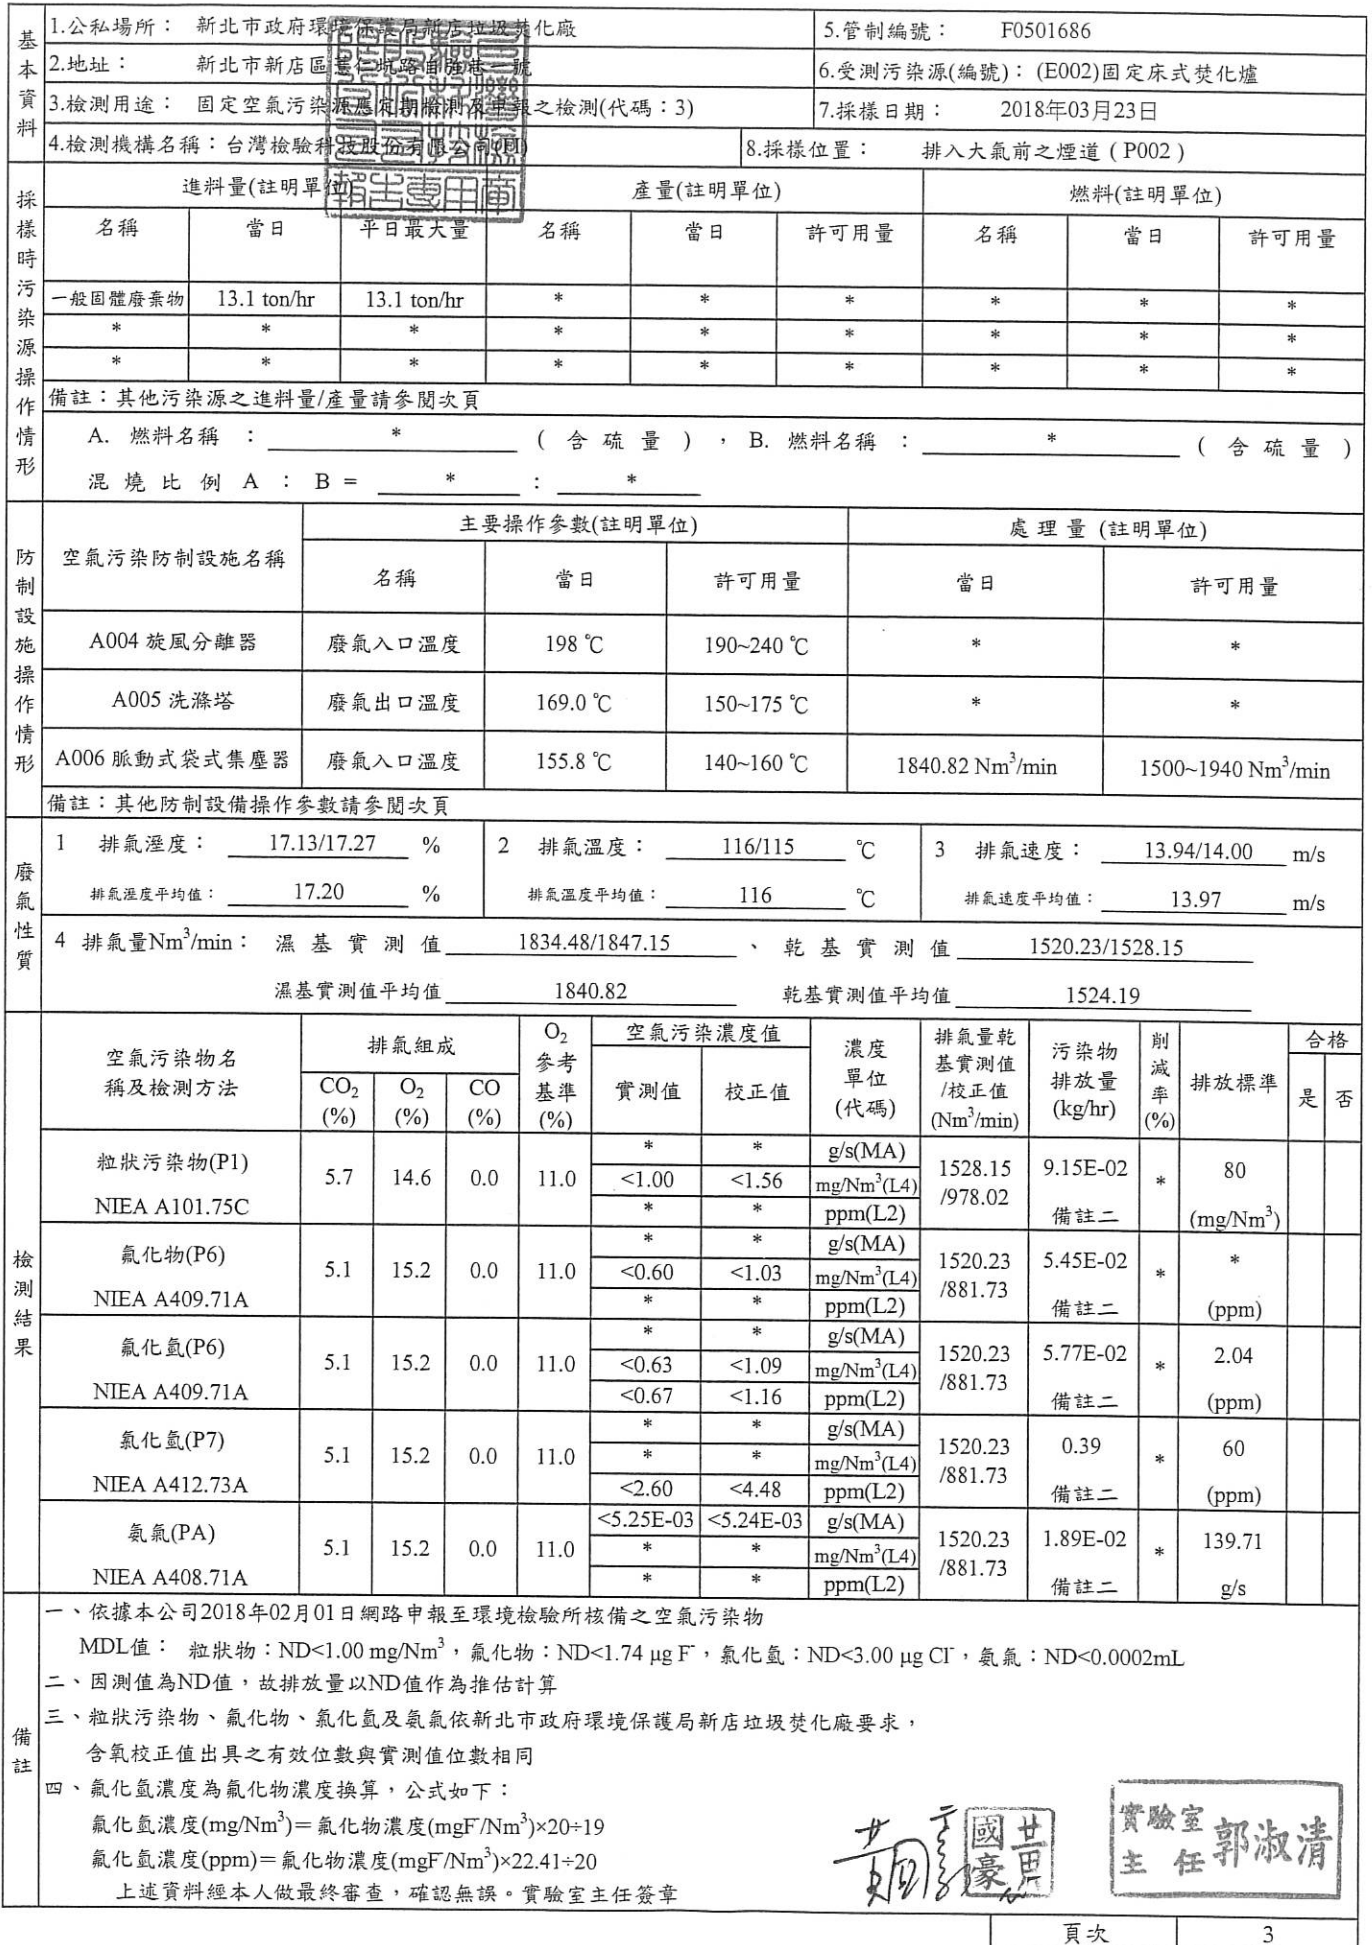 基本資料
1.公私場所： 新北市政府環境保護局新店垃圾焚化廠
5.管制編號： F0501686
2.地址： 新北市新店區薏仁坑路自強巷一號
6.受測污染源(編號)： (E002)固定床式焚化爐
3.檢測用途： 固定空氣污染源應定期檢測及申報之檢測(代碼：3)
7.採樣日期： 2018年03月23日
4.檢測機構名稱：台灣檢驗科技股份有限公司
8.採樣位置： 排入大氣前之煙道 ( P002 )
採樣時污染源操作情形
進料量(註明單位) 產量(註明單位) 燃料(註明單位)
名稱 當日 平日最大量 名稱 當日 許可用量 名稱 當日 許可用量
一般固體廢棄物 13.1 ton/hr 13.1 ton/hr * * * * * *
* * * * * * * * *
* * * * * * * * *
備註：其他污染源之進料量/產量請參閱次頁
A. 燃料名稱 ： * ( 含 硫 量 ) ， B. 燃料名稱 ： * ( 含 硫 量 )
混 燒 比 例 A ： B = * ： *
防制設施操作情形
空氣污染防制設施名稱 主要操作參數(註明單位) 處 理 量 (註明單位)
名稱 當日 許可用量 當日 許可用量
A004 旋風分離器 廢氣入口溫度 198 ℃ 190~240 ℃ * *
A005 洗滌塔 廢氣出口溫度 169.0 ℃ 150~175 ℃ * *
A006 脈動式袋式集塵器 廢氣入口溫度 155.8 ℃ 140~160 ℃ 1840.82 Nm³/min 1500~1940 Nm³/min
備註：其他防制設備操作參數請參閱次頁
廢氣性質
1 排氣溼度： 17.13/17.27 % 2 排氣溫度： 116/115 ℃ 3 排氣速度： 13.94/14.00 m/s
排氣溼度平均值： 17.20 % 排氣溫度平均值： 116 ℃ 排氣速度平均值： 13.97 m/s
4 排氣量Nm³/min： 濕 基 實 測 值 1834.48/1847.15 、 乾 基 實 測 值 1520.23/1528.15
濕基實測值平均值 1840.82 乾基實測值平均值 1524.19
檢測結果
空氣污染物名稱及檢測方法 排氣組成 O₂參考基準(%) 空氣污染濃度值 濃度單位(代碼) 排氣量乾基實測值/校正值(Nm³/min) 污染物排放量(kg/hr) 削減率(%) 排放標準 合格
CO₂(%) O₂(%) CO(%) 實測值 校正值 是 否
粒狀污染物(P1) NIEA A101.75C 5.7 14.6 0.0 11.0 1528.15/978.02 9.15E-02 備註二 * 80 (mg/Nm³)
* * g/s(MA)
<1.00 <1.56 mg/Nm³(L4)
* * ppm(L2)
氟化物(P6) NIEA A409.71A 5.1 15.2 0.0 11.0 1520.23/881.73 5.45E-02 備註二 * * (ppm)
* * g/s(MA)
<0.60 <1.03 mg/Nm³(L4)
* * ppm(L2)
氟化氫(P6) NIEA A409.71A 5.1 15.2 0.0 11.0 1520.23/881.73 5.77E-02 備註二 * 2.04 (ppm)
* * g/s(MA)
<0.63 <1.09 mg/Nm³(L4)
<0.67 <1.16 ppm(L2)
氯化氫(P7) NIEA A412.73A 5.1 15.2 0.0 11.0 1520.23/881.73 0.39 備註二 * 60 (ppm)
* * g/s(MA)
* * mg/Nm³(L4)
<2.60 <4.48 ppm(L2)
氨氣(PA) NIEA A408.71A 5.1 15.2 0.0 11.0 1520.23/881.73 1.89E-02 備註二 * 139.71 g/s
<5.25E-03 <5.24E-03 g/s(MA)
* * mg/Nm³(L4)
* * ppm(L2)
備註
一、依據本公司2018年02月01日網路申報至環境檢驗所核備之空氣污染物
MDL值： 粒狀物：ND<1.00 mg/Nm³，氟化物：ND<1.74 μg F⁻，氯化氫：ND<3.00 μg Cl⁻，氨氣：ND<0.0002mL
二、因測值為ND值，故排放量以ND值作為推估計算
三、粒狀污染物、氟化物、氯化氫及氨氣依新北市政府環境保護局新店垃圾焚化廠要求，
含氧校正值出具之有效位數與實測值位數相同
四、氟化氫濃度為氟化物濃度換算，公式如下：
氟化氫濃度(mg/Nm³)＝氟化物濃度(mgF⁻/Nm³)×20÷19
氟化氫濃度(ppm)＝氟化物濃度(mgF⁻/Nm³)×22.41÷20
上述資料經本人做最終審查，確認無誤。實驗室主任簽章
黃國豪
實驗室主任 郭淑清
頁次 3